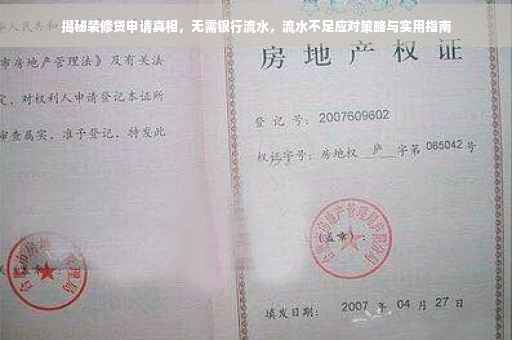 揭秘装修贷申请真相，无需银行流水，流水不足应对策略与实用指南
华人民共和国
市房地产管理法》及有
定，对权利人申请登记本证所
审查属实，准予登记，特发此
房地产权证
登 记 号：2007609602
权证字号：房地权 庐 字第 085042 号
(盖章)：
填发日期：2007 年 04 月 27 日